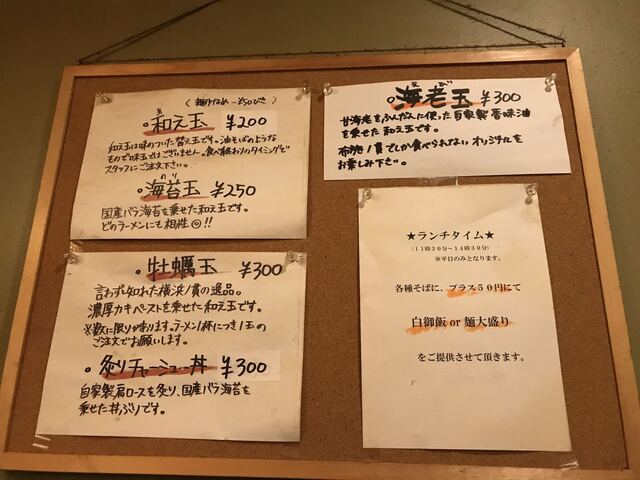 (麺少なめ→¥50びき)
あ
・和え玉 ¥200
和え玉は味のついた替え玉です。油そばのような
もので味玉ではございません。食べ終わりのタイミングで
スタッフにご注文下さい。
のり
・海苔玉 ¥250
国産バラ海苔を乗せた和え玉です。
どのラーメンにも相性◎!!
・牡蠣玉 ¥300
言わずと知れた横浜1貫の逸品。
濃厚カキペーストを乗せた和え玉です。
※数に限りがあります。ラーメン1杯につき1玉の
ご注文でお願いします。
・炙りチャーシュー丼 ¥300
自家製肩ロースを炙り、国産バラ海苔を
乗せた丼ぶりです。
えび
・海老玉 ¥300
甘海老をふんだんに使った自家製香味油
を乗せた和え玉です。
でしか食べられないオリジナルを
お楽しみ下さい。
★ランチタイム★
(11時30分~14時30分)
※平日のみとなります。
各種そばに、プラス50円にて
白御飯 or 麺大盛り
をご提供させて頂きます。